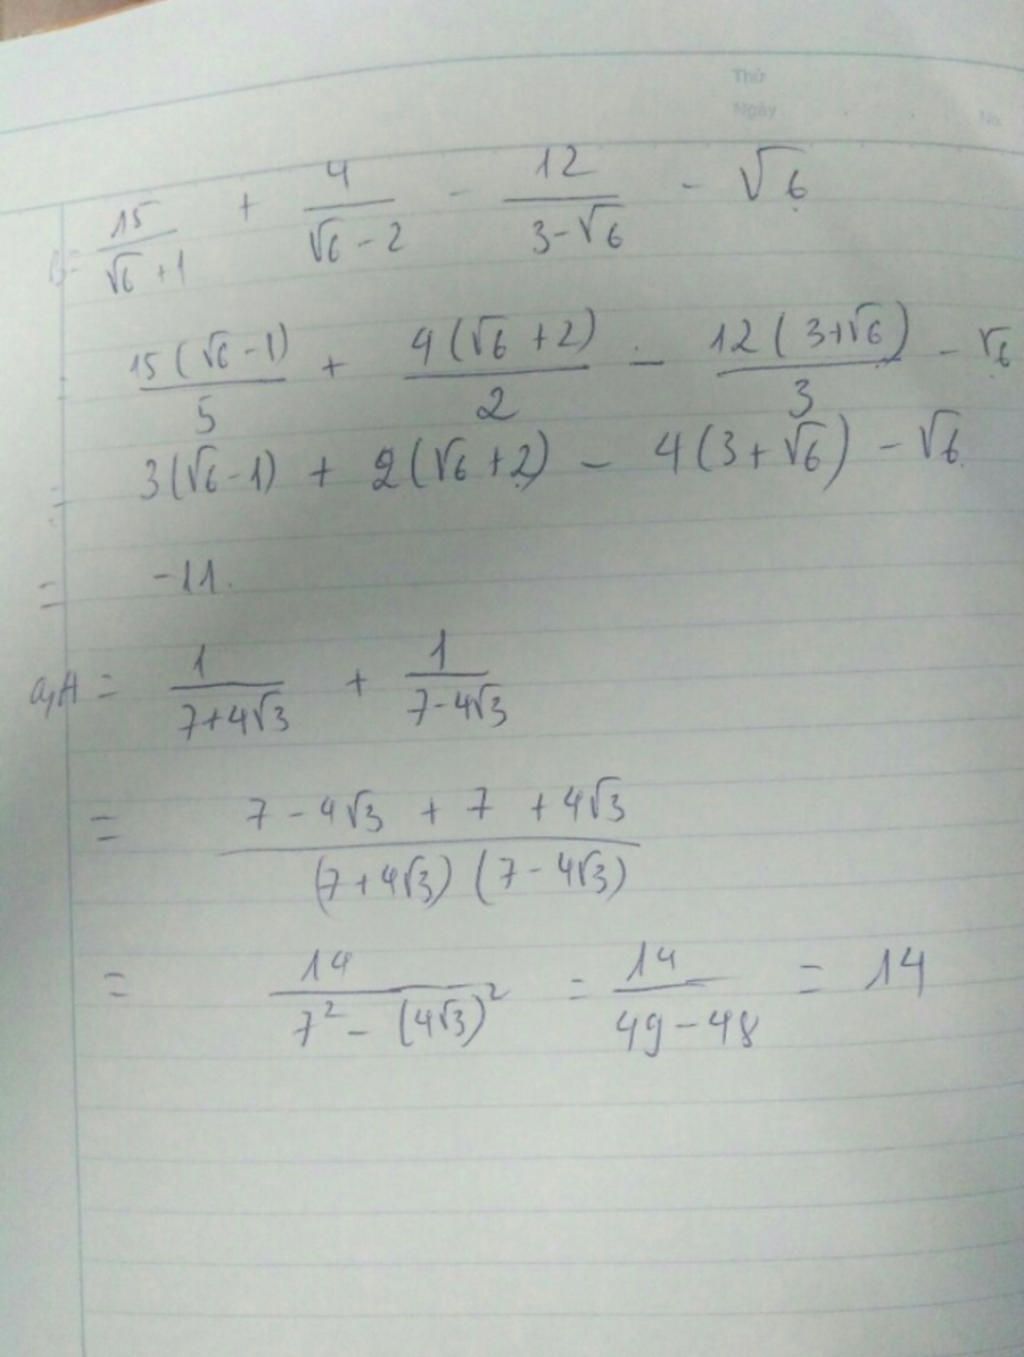 Thứ
Ngày
No.
B = 15/(√6 + 1) + 4/(√6 - 2) - 12/(3 - √6) - √6
= 15(√6 - 1)/5 + 4(√6 + 2)/2 - 12(3+√6)/3 - √6
= 3(√6 - 1) + 2(√6 + 2) - 4(3+√6) - √6
= -11.
a, A = 1/(7+4√3) + 1/(7-4√3)
= (7 - 4√3 + 7 + 4√3)/((7+4√3) (7 - 4√3))
= 14/(7² - (4√3)²) = 14/(49 - 48) = 14